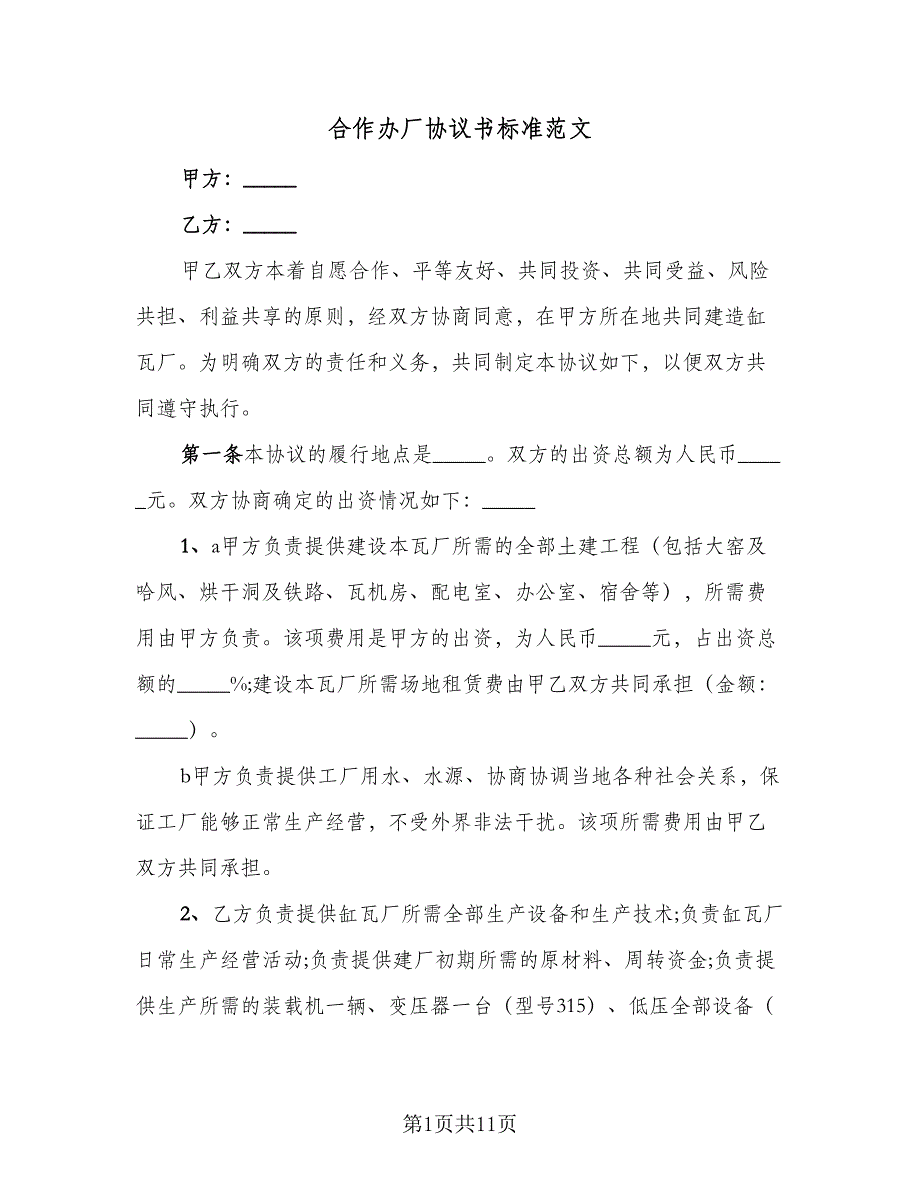 合作办厂协议书标准范文
甲方：_____
乙方：_____
甲乙双方本着自愿合作、平等友好、共同投资、共同受益、风险
共担、利益共享的原则，经双方协商同意，在甲方所在地共同建造缸
瓦厂。为明确双方的责任和义务，共同制定本协议如下，以便双方共
同遵守执行。
第一条本协议的履行地点是_____。双方的出资总额为人民币____
_元。双方协商确定的出资情况如下：_____
1、a甲方负责提供建设本瓦厂所需的全部土建工程（包括大窑及
哈风、烘干洞及铁路、瓦机房、配电室、办公室、宿舍等），所需费
用由甲方负责。该项费用是甲方的出资，为人民币_____元，占出资总
额的_____%;建设本瓦厂所需场地租赁费由甲乙双方共同承担（金额：
_____）。
b甲方负责提供工厂用水、水源、协商协调当地各种社会关系，保
证工厂能够正常生产经营，不受外界非法干扰。该项所需费用由甲乙
双方共同承担。
2、乙方负责提供缸瓦厂所需全部生产设备和生产技术;负责缸瓦厂
日常生产经营活动;负责提供建厂初期所需的原材料、周转资金;负责提
供生产所需的装载机一辆、变压器一台（型号315）、低压全部设备（
第1页共11页